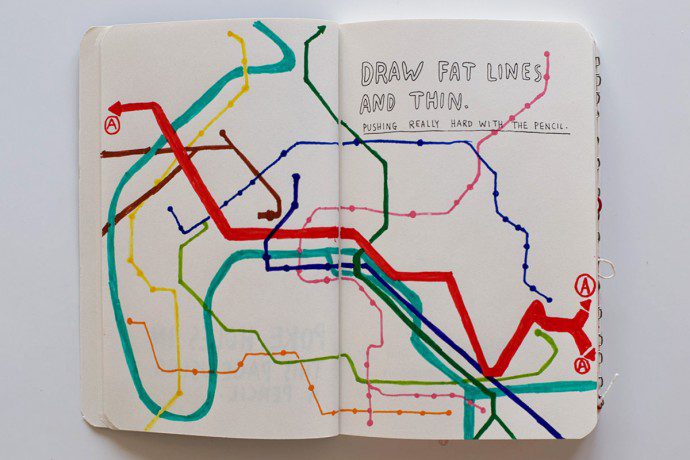 DRAW FAT LINES
AND THIN.
PUSHING REALLY HARD WITH THE PENCIL.
A
A
A